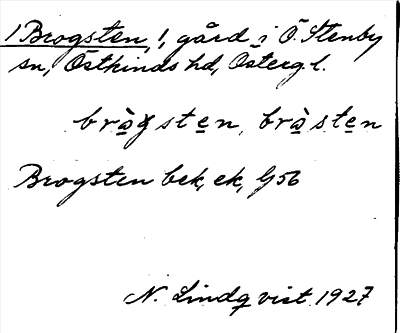 1 Brogsten, !, gård i Ö. Stenby
sn, Östkinds hd, Österg. l.
bràgsten, bràsten
Brogsten bek, ek, G 56
N. Lindqvist 1927